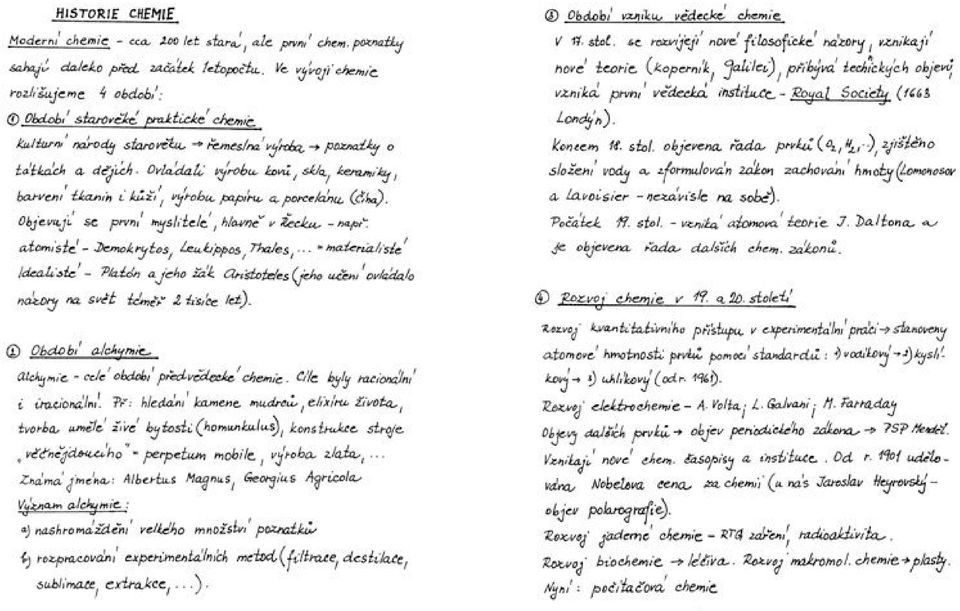 HISTORIE CHEMIE
Moderní chemie - cca 200 let stará, ale první chem. poznatky
sahají daleko před začátek letopočtu. Ve vývoji chemie
rozlišujeme 4 období:
① Období starověké praktické chemie
Kulturní národy starověku → řemeslná výroba → poznatky o
látkách a dějích. Ovládali výrobu kovů, skla, keramiky,
barvení tkanin i kůží, výrobu papíru a porcelánu (Čína).
Objevují se první myslitelé, hlavně v Řecku - např.
atomisté - Demokrytos, Leukippos, Thales, ... = materialisté
Idealisté - Platón a jeho žák Aristoteles (jeho učení ovládalo
názory na svět téměř 2 tisíce let).
② Období alchymie
Alchymie - celé období předvědecké chemie. Cíle byly racionální
i iracionální. Př: hledání kamene mudrců, elixíru života,
tvorba umělé živé bytosti (homunkulus), konstrukce stroje
"věčnějdoucího" = perpetum mobile, výroba zlata, ...
Známá jména: Albertus Magnus, Georgius Agricola
Význam alchymie:
a) nashromáždění velkého množství poznatků
b) rozpracování experimentálních metod (filtrace, destilace,
sublimace, extrakce, ...).
③ Období vzniku vědecké chemie
V 17. stol. se rozvíjejí nové filosofické názory, vznikají
nové teorie (Koperník, Galilei), přibývá technických objevů,
vzniká první vědecká instituce - Royal Society (1663
Londýn).
Koncem 18. stol. objevena řada prvků (O₂, H₂, ..), zjištěno
složení vody a zformulován zákon zachování hmoty (Lomonosov
a Lavoisier - nezávisle na sobě).
Počátek 19. stol. - vzniká atomová teorie J. Daltona a
je objevena řada dalších chem. zákonů.
④ Rozvoj chemie v 19. a 20. století
Rozvoj kvantitativního přístupu v experimentální práci → stanoveny
atomové hmotnosti prvků pomocí standardů: 1) vodíkový → 2) kyslí-
kový → 3) uhlíkový (od r. 1961).
Rozvoj elektrochemie - A. Volta; L. Galvani; M. Farraday
Objevy dalších prvků → objev periodického zákona → PSP Menděl.
Vznikají nové chem. časopisy a instituce. Od r. 1901 udělo-
vána Nobelova cena za chemii (u nás Jaroslav Heyrovský -
objev polarografie).
Rozvoj jaderné chemie - RTG záření, radioaktivita.
Rozvoj biochemie → léčiva. Rozvoj makromol. chemie → plasty.
Nyní: počítačová chemie